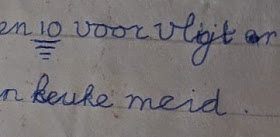 en 10 voor vlijt en
n keuke meid.